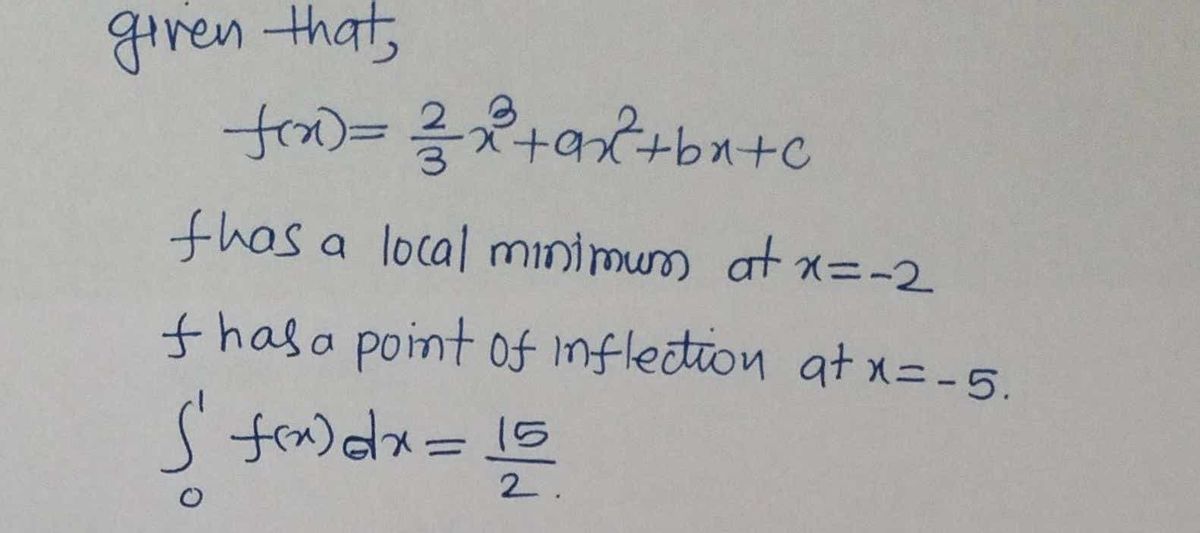 given that,
f(x) = 2/3 x³ + ax² + bx + c
f has a local minimum at x = -2
f has a point of inflection at x = -5.
∫₀¹ f(x) dx = 15/2.